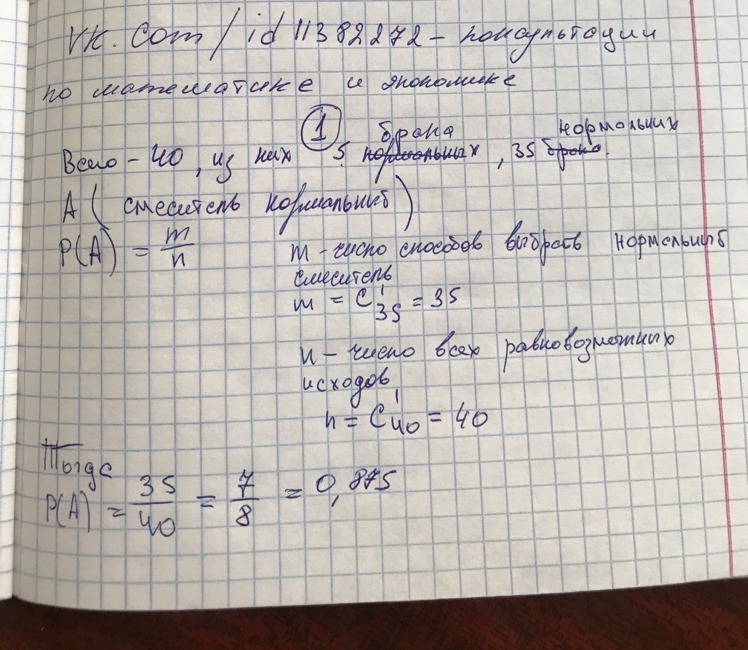 vk.com/id11382272 - консультации
по математике и экономике
1
Всего - 40, из них 5 брака нормальных, 35 нормальных брака.
A (смеситель нормальный)
P(A) = m/n
m - число способов выбрать нормальный
смеситель
m = C¹₃₅ = 35
n - число всех равновозможных
исходов
n = C¹₄₀ = 40
Тогда
P(A) = 35/40 = 7/8 = 0,875